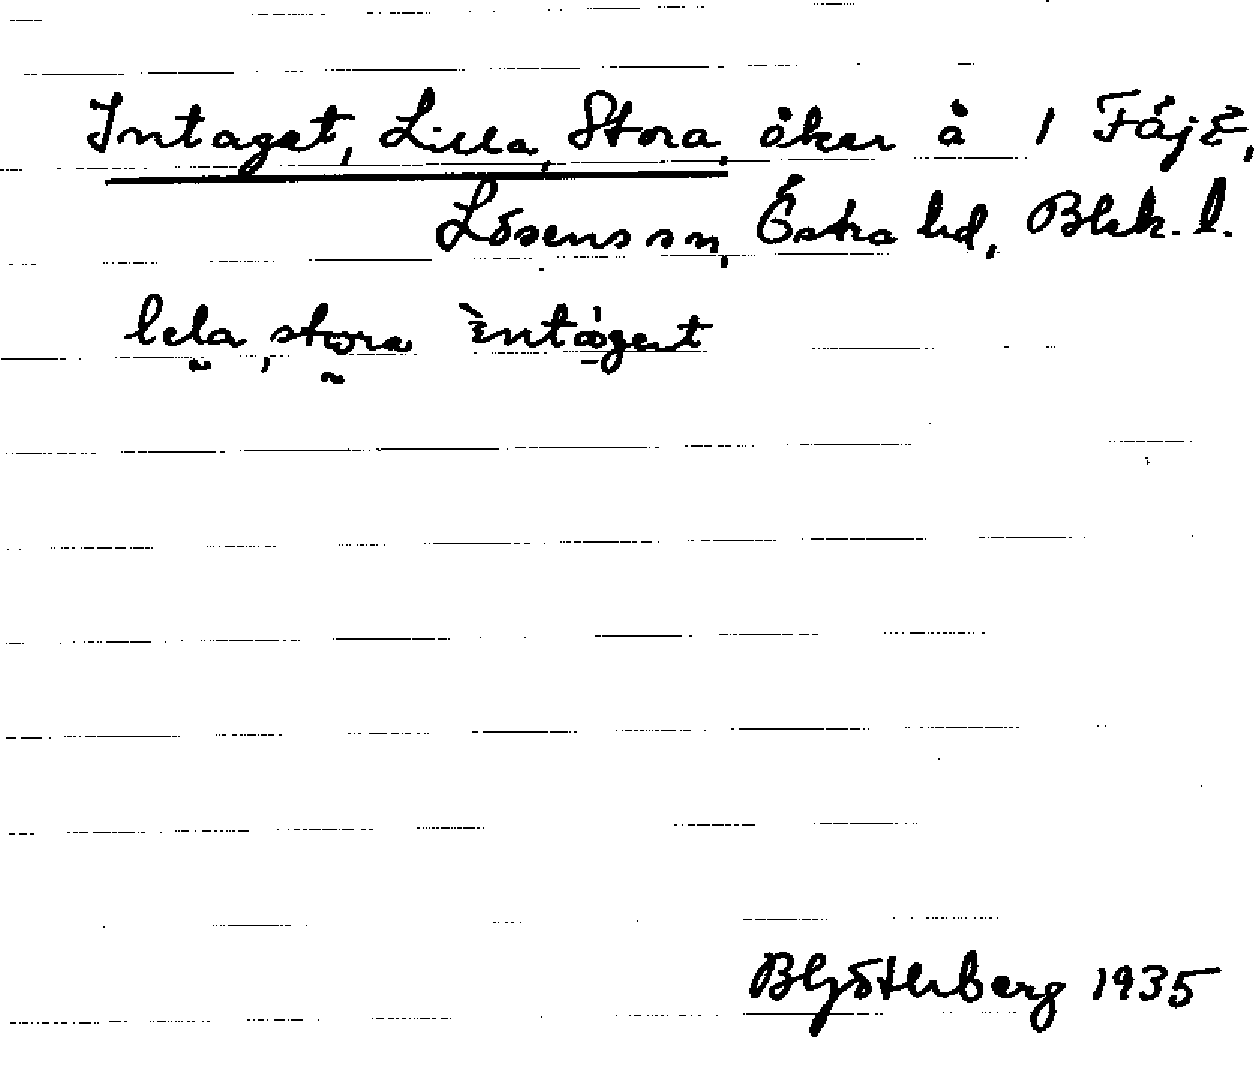 Intaget, Lilla, Stora, åker å 1 Fäjö,
Lösens sn, Östra hd, Blek. l.
lela, stora intåget
1935